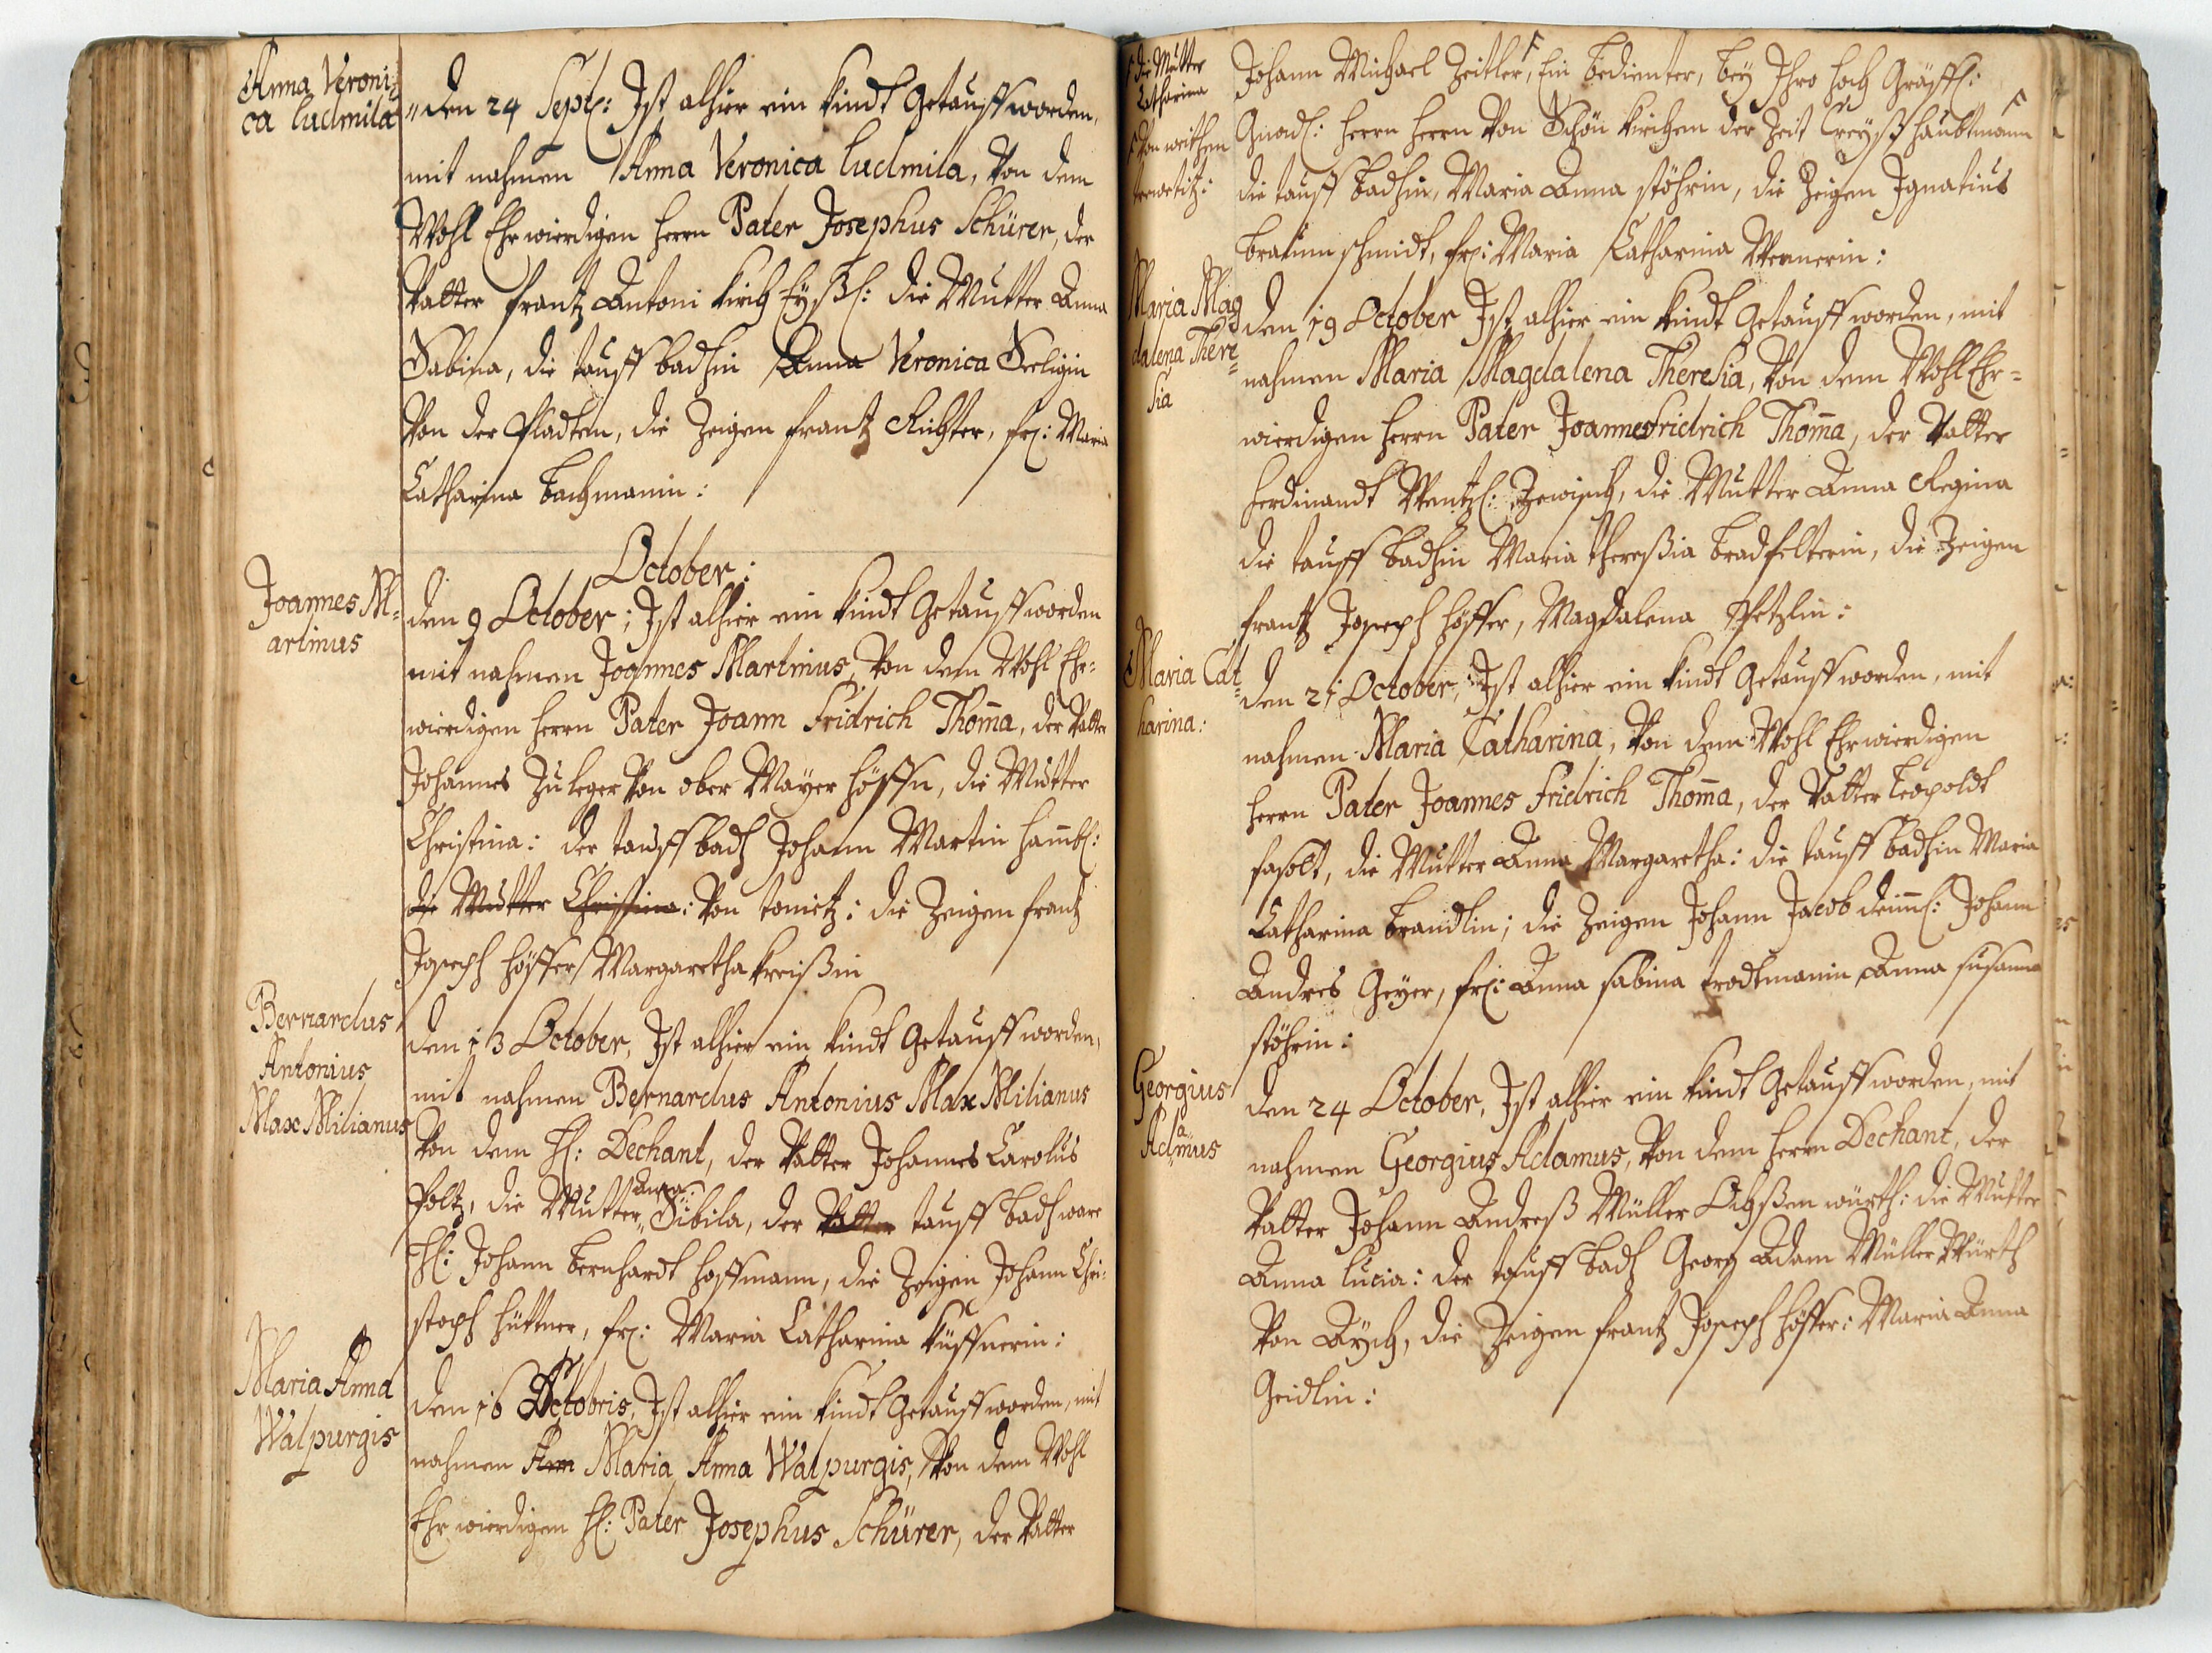 Anna Veroni=
ca Ludmila
den 24 Sept: Ist alhier ein Kindt Getaufft worden,
mit nahmen Anna Veronica Ludmila, Von dem
Wohl Ehrwierdigen Herrn Pater Josephus Schürer, der
Vatter Frantz Antoni die Mutter Anna
Sabina, die tauff badhin Anna Veronica Seeligin
Von der Pladten, die Zeigen Frantz Richter, fr: Maria
Catharina Bachmanin:
October:
Joannes M=
artinus
den 9 October; Ist alhier ein Kindt Getaufft worden
mit nahmen Joannes Martinus, Von dem Wohl Ehr=
wierdigen Herrn Pater Joann Fridrich Thoma, der Vatter
Johannes Zuleger Von ober Mayer höffen, die Mutter
Christina: der tauff badh Johann Martin
die Mutter Christina: Von : die Zeigen Frantz
Joseph Höffer, Margaretha
Bernardus
Antonius
Max Milianus
den 13 October, Ist alhier ein Kindt Getaufft worden,
mit nahmen Bernardus Antonius Max Milianus
Von dem H: Dechant, der Vatter Johannes Carolus
Poltz, die Mutter Anna Sibila, der Vatter tauff badh ware
H: Johann Bernhardt Hoffmann, die Zeigen Johann Chri=
stoph Hüttner, fr: Maria Catharina Küffnerin:
Maria Anna
Walpurgis
den 16 Octobris, Ist alhier ein Kindt Getaufft worden, mit
nahmen Ann Maria Anna Walpurgis, Von dem Wohl
Ehrwierdigen H: Pater Josephus Schürer, der Vatter
die Mutter
Catharina
Johann Michael Zeitler, Ein bedienter, bey Ihro Hoch Gräffl:
Gnadl: Herrn Herrn Von Schön Kirchen der Zeit Creyß Haubtmann
die tauff badhin, Maria Anna Stöhrin, die Zeigen Ignatius
Braun schmidt, fr: Maria Catharina Wernerin:
Maria Mag
dalena There=
sia
den 19 October Ist alhier ein Kindt Getaufft worden, mit
nahmen Maria Magdalena Theresia, Von dem Wohl Ehr=
wierdigen Herrn Pater Joannes Fridrich Thoma, der Vatter
Ferdinandt Wentzl: , die Mutter Anna Regina
die tauff badhin Maria Thereßia , die Zeigen
Frantz Joseph Höffer, Magdalena
Maria Cat=
harina:
den 21 October, Ist alhier ein Kindt Getaufft worden, mit
nahmen Maria Catharina, Von dem Wohl Ehrwierdigen
Herrn Pater Joannes Fridrich Thoma, der Vatter Leopoldt
Fasolt, die Mutter Anna Margaretha: die tauff badhin Maria
Catharina Brandlin; die Zeigen Johann Jacob Johann
Andres Geyer, fr: Anna Sabina Anna Susanna
Stöhrin:
Georgius
Adamus
den 24 October, Ist alhier ein Kindt Getaufft worden, mit
nahmen Georgius Adamus, Von dem Herrn Dechant, der
Vatter Johann Andreß Müller Ochßen würth: die Mutter
Anna Lucia: der tauff badh Georg Adam Müller Würth
Von Aych, die Zeigen Frantz Joseph Höffer: Maria Anna
Geidlin: